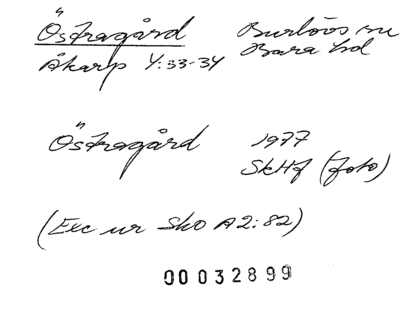 Östragård Burlövs sn
Åkarp 4:33-34 Bara hd
Östragård 1977
SkHf (foto)
(Exc ur Sko A2:82)
00032899